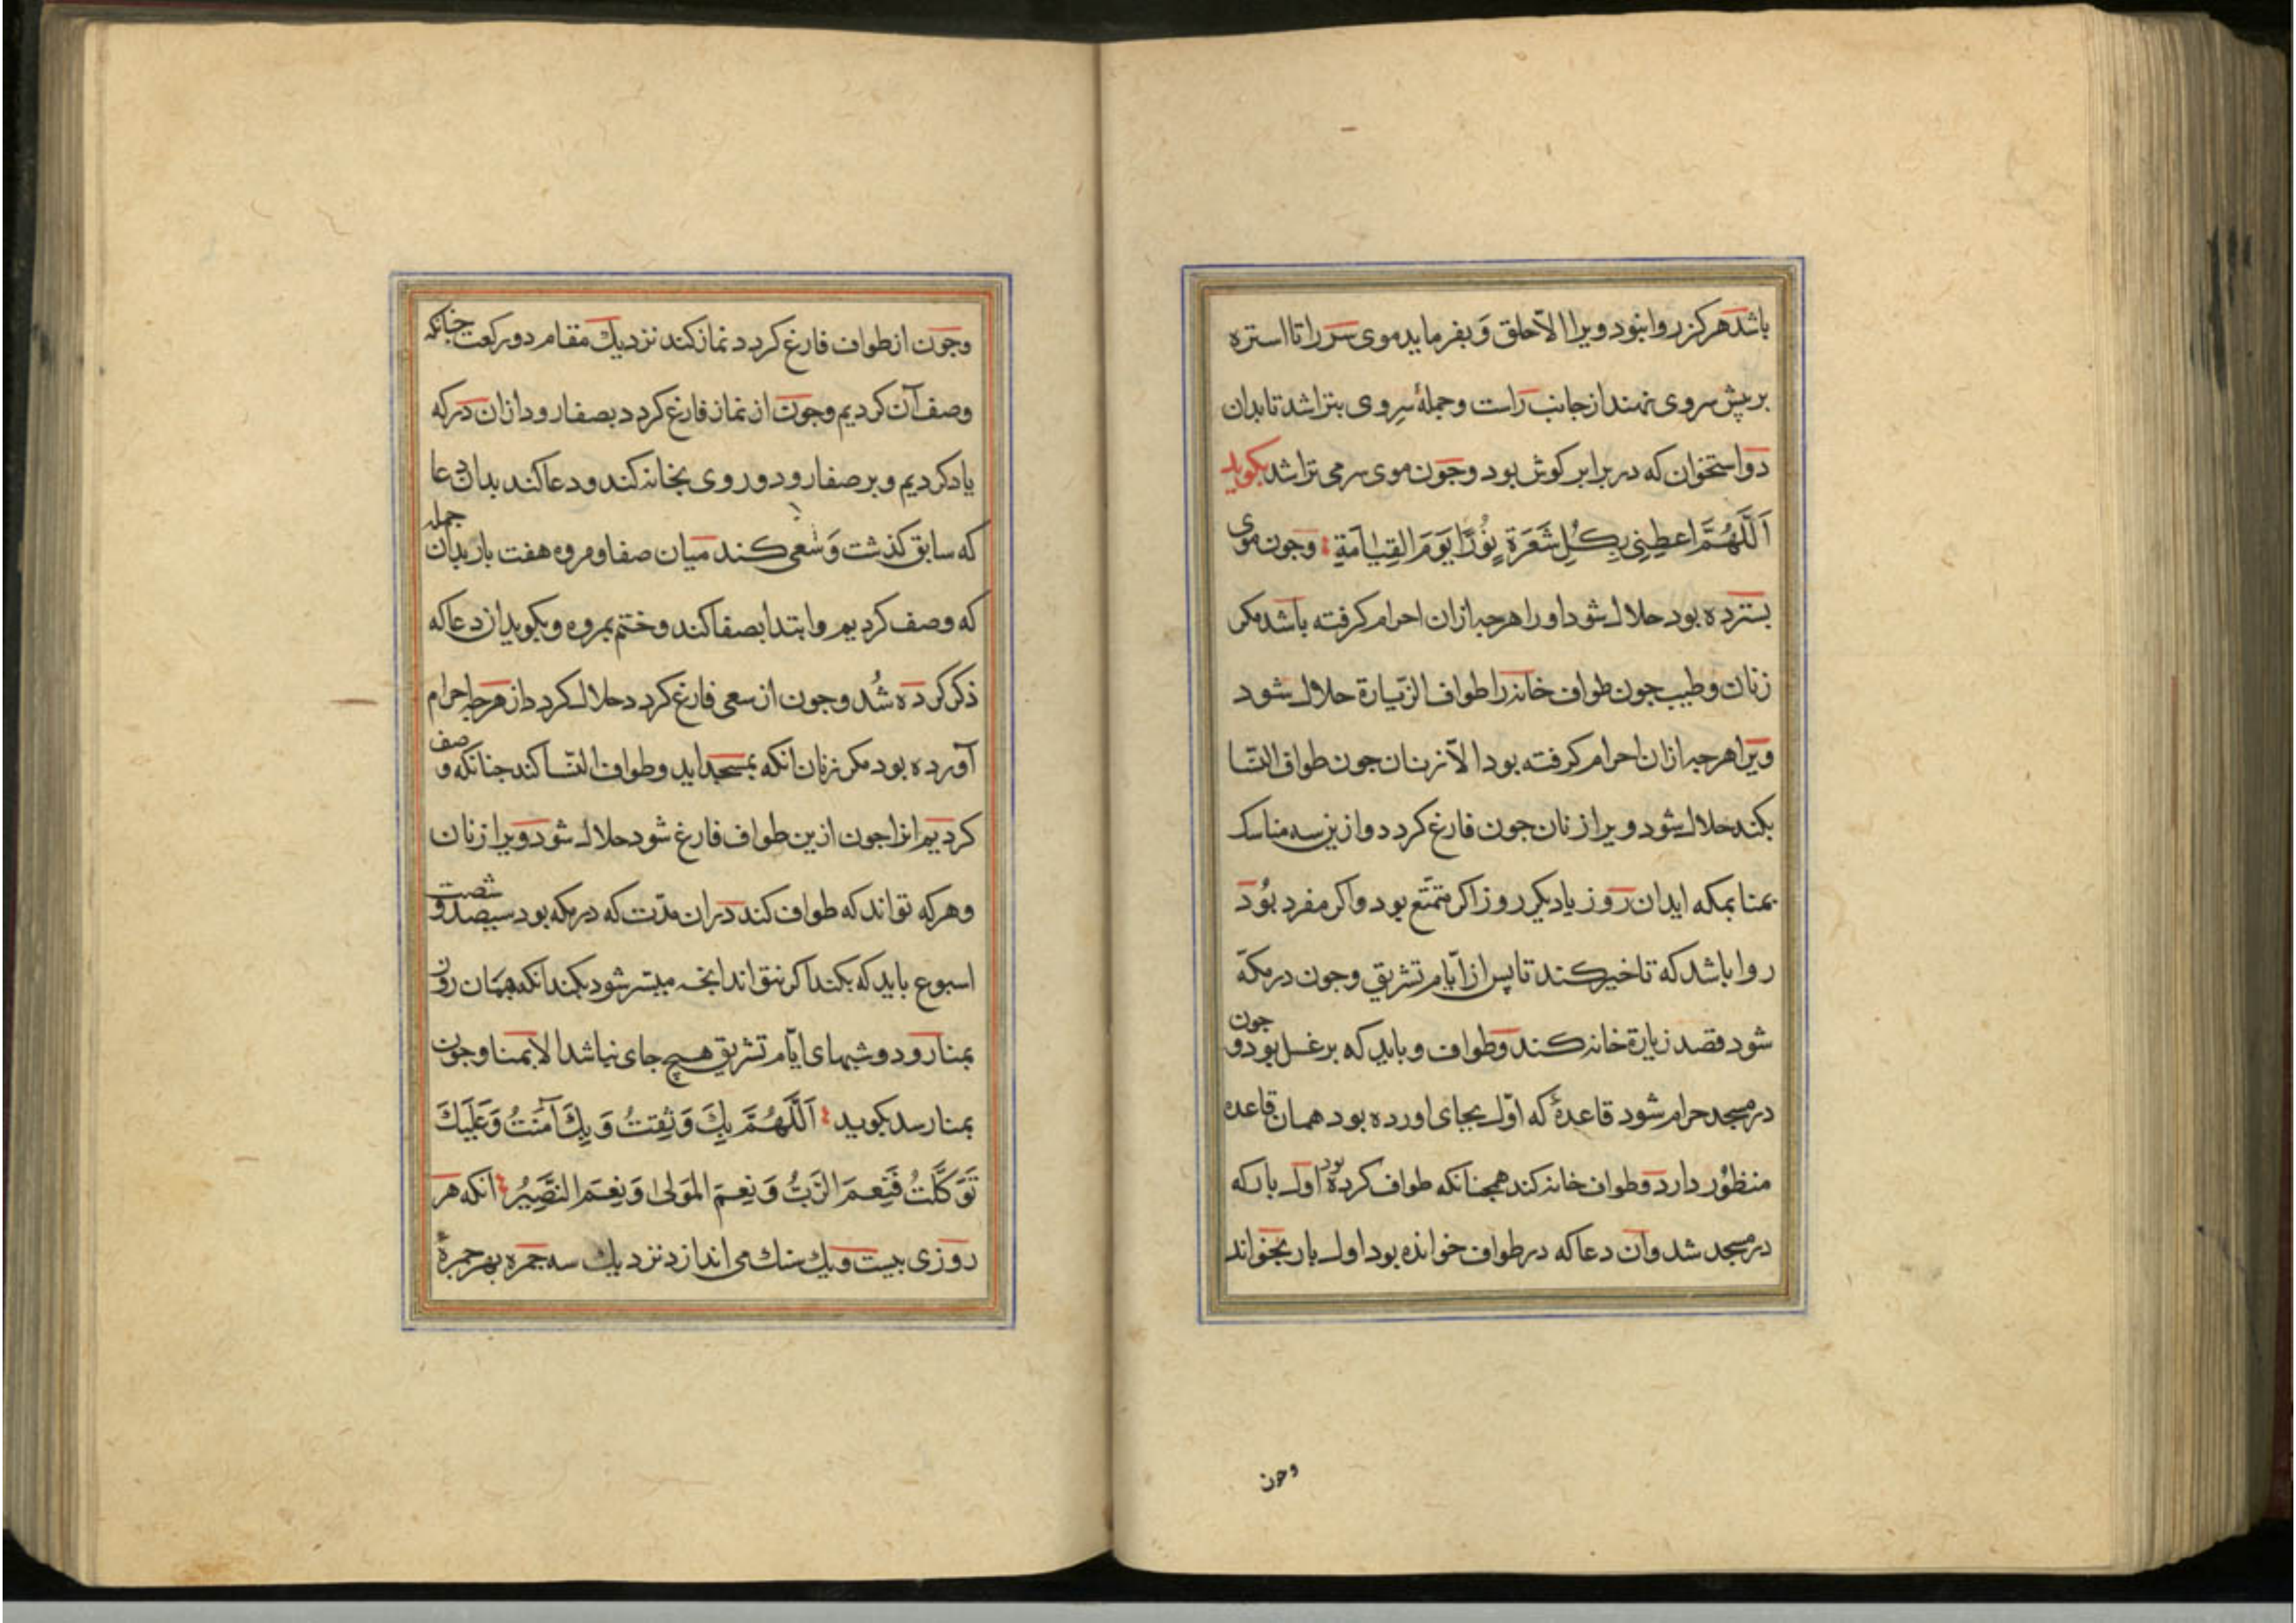 باشد هرکز روا نبود ویرا الّا حلق وَ بفرماید موی سر را تا استره
بر پیش سر وی نهند از جانب راست و جملهٔ سرِ وی بتراشد تا بدان
دو استخوان که در برابر کوش بود و جون موی سر می تراشد بکوید
اَللَّهُمَّ اعطِنِی بِکُلِ شَعَرَةٍ نُورًا یَومَ القِیٰامَةِ وجون موی
بسترده بود حلال شود او را هرجه ازان احرام کرفته باشد مکر
زنان و طیب جون طواف خانه را طواف الزّیارة حلال شود
ویرا هرجه ازان احرام کرفته بود الّا زنان جون طواف النّسا
بکند حلال شود ویرا زنان جون فارغ کردد و ازین سه مناسک
بمنا بمکه اید ان روز یا دیکر روز اکر متمتّع بود و اکر مفرد بُوَد
روا باشد که تاخیر کند تا پس از ایّام تشریق وجون در مکّه
شود قصد زیارة خانه کند و طواف و باید که بر غسل بود و جون
در مسجد حرام شود قاعدهٔ که اوّل بجای اورده بود همان قاعده
منظوُر دارد و طواف خانه کند همجنانکه طواف کرده بود اول بار که
در مسجد شد و آن دعا که در طواف خوانده بود اول بار بخواند
وجون
وجون از طواف فارغ کردد نماز کند نزدیک مقام دو رکعت جنانکه
وصف آن کردیم وجون از نماز فارغ کردد بصفا رود ازان در که
یاد کردیم و بر صفا رود و روی بخانه کند و دعا کند بدان دعا
که سابق کذشت وَ سَعی کند میان صفا و مروه هفت بار بدان جمله
که وصف کردیم و ابتدا بصفا کند و ختم بمروه و بکوید ان دعا که
ذکر کرده شُد وجون از سعی فارغ کردد حلال کردد از هرجه احرام
آورده بود مکر زنان انکه بمسجد اید و طواف النّسا کند جنانکه وصف
کردیم انرا جون ازین طواف فارغ شود حلال شود ویرا زنان
و هرکه تواند که طواف کند دران مدّت که در مکه بود سیصد و شصت
اسبوع باید که بکند اکر نتواند انجه میسّر شود بکند انکه همان روز
بمنا رود و شبهای ایّام تشریق هیچ جای نباشد الا بمنا وجون
بمنا رسد بکوید اَللَّهُمَّ بِكَ وَثِقتُ وَ بِكَ آمَنتُ وَ عَلَیكَ
تَوَکَّلتُ فَنِعمَ الرَّبُّ وَ نِعمَ المَولیٰ وَ نِعمَ النَّصِیرُ انکه هر
روزی بیست و یك سنك می اندازد نزدیك سه جمره بهر جمرهٔ